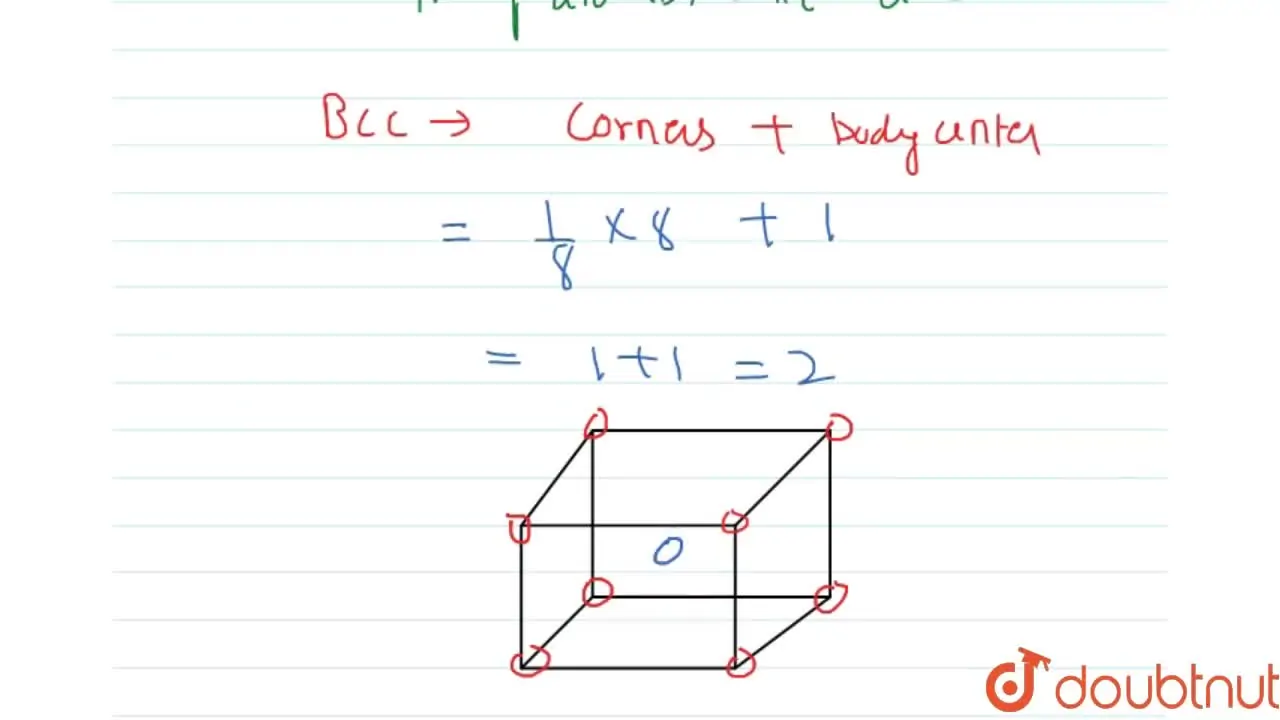 BCC → Corners + body center
= 1/8 × 8 + 1
= 1 + 1 = 2
doubtnut